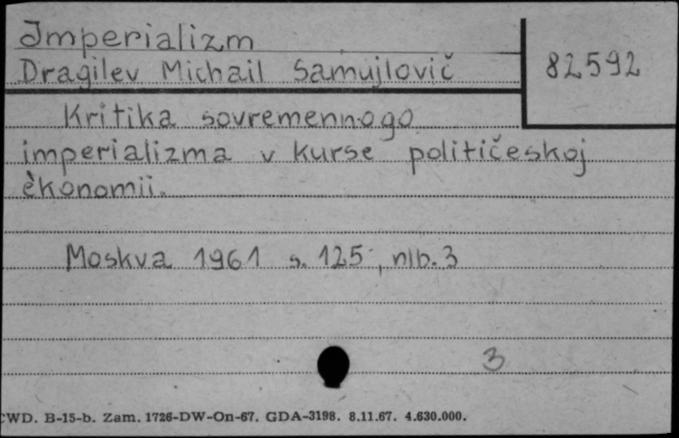 Imperializm
Dragilev Michail Samujlovič
82592
Kritika sovremennogo
imperializma v kurse političeskoj
èkonomii.
Moskva 1961 s. 125, nlb. 3
3
CWD. B-15-b. Zam. 1726-DW-On-67. GDA-3198. 8.11.67. 4.630.000.